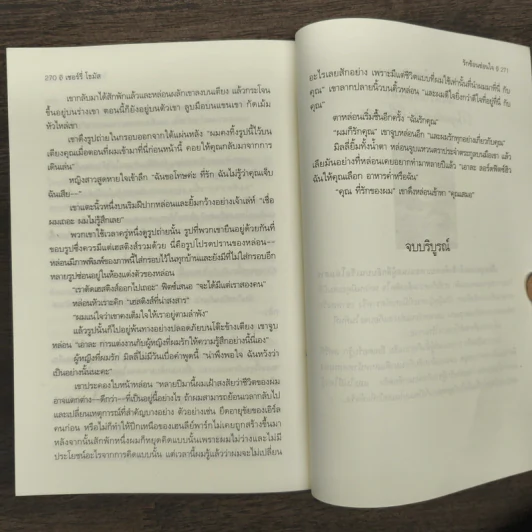 270 ๏ เชอร์รี่ โธมัส
เขากลับมาได้สักพักแล้วและหล่อนผลักเขาลงบนเตียง แล้วกระโจน
ขึ้นบนร่างเขา ตอนนี้ก็ยังอยู่บนตัวเขา ลูบมือบนแขนเขา กัดเม้ม
หัวไหล่เขา
เขาดึงรูปถ่ายในกรอบออกจากใต้แผ่นหลัง “ผมคงทิ้งรูปนี้ไว้บน
เตียงคุณเมื่อตอนที่ผมเข้ามาที่นี่ก่อนหน้านี้ คอยให้คุณกลับมาจากการ
เดินเล่น”
หญิงสาวสูดหายใจเข้าลึก “ฉันขอโทษค่ะ ที่รัก ฉันไม่รู้ว่าคุณเจ็บ
ฉันเสีย—”
เขาแตะนิ้วหนึ่งบนริมฝีปากหล่อนและยิ้มกว้างอย่างเจ้าเล่ห์ “เชื่อ
ผมเถอะ ผมไม่รู้สึกเลย”
พวกเขาใช้เวลาครู่หนึ่งดูรูปถ่ายนั้น รูปที่พวกเขายืนอยู่ด้วยกันที่
ขอบรูปซึ่งควรมีแต่เฮสติงส์รวมด้วย นี่คือรูปโปรดปรานของหล่อน—
หล่อนมีภาพพิมพ์ของภาพนี้ใส่กรอบไว้ในทุกบ้านและยังมีที่ไม่ใส่กรอบอีก
หลายรูปซ่อนอยู่ในห้องแต่งตัวของหล่อน
“เราตัดเฮสติงส์ออกไปเถอะ” ฟิตซ์เสนอ “จะได้มีแต่เราสองคน”
หล่อนหัวเราะคิก “เฮสติงส์ที่น่าสงสาร”
“ผมแน่ใจว่าเขาคงเต็มใจให้เราอยู่ตามลำพัง”
แล้วรูปนั้นก็ไปอยู่พ้นทางอย่างปลอดภัยบนโต๊ะข้างเตียง เขาจูบ
หล่อน “เอาละ การแต่งงานกับผู้หญิงที่ผมรักให้ความรู้สึกอย่างนี้นี่เอง”
ผู้หญิงที่ผมรัก มิลลี่ไม่มีวันเบื่อคำพูดนี้ “น่าพึงพอใจ ฉันหวังว่า
เป็นอย่างนั้นนะคะ”
เขาประคองใบหน้าหล่อน “หลายปีมานี้ผมเฝ้าสงสัยว่าชีวิตของผม
อาจแตกต่าง—ดีกว่า—ที่เป็นอยู่นี้อย่างไร ถ้าผมสามารถย้อนเวลากลับไป
และเปลี่ยนเหตุการณ์ที่สำคัญบางอย่าง ตัวอย่างเช่น ยืดอายุขัยของเอิร์ล
คนก่อน หรือไม่ก็ทำให้ปีกเหนือของเฮนลีย์พาร์กไม่เคยถูกสร้างขึ้นมา
หลังจากนั้นสักพักหนึ่งผมก็หยุดคิดแบบนั้นเพราะผมไม่ว่างและไม่มี
ประโยชน์อะไรจากการคิดแบบนั้น แต่เวลานี้ผมรู้แล้วว่าผมจะไม่เปลี่ยน
รักซ้อนซ่อนใจ ๏ 271
อะไรเลยสักอย่าง เพราะมีแต่ชีวิตแบบที่ผมใช้เท่านั้นที่นำผมมาที่นี่ กับ
คุณ” เขาลากปลายนิ้วบนคิ้วหล่อน “และผมดีใจยิ่งกว่าดีใจที่อยู่ที่นี่ กับ
คุณ”
ตาหล่อนเริ่มชื้นอีกครั้ง “ฉันรักคุณ”
“ผมก็รักคุณ” เขาจูบหล่อนอีก “และผมรักทุกอย่างเกี่ยวกับคุณ”
มิลลี่ยิ้มทั้งน้ำตา หล่อนจูบแหวนตราประจำตระกูลบนมือเขา แล้ว
เลียมันอย่างที่หล่อนเคยอยากทำมาหลายปีแล้ว “เอาละ ลอร์ดฟิตซ์ฮิว
ฉันให้คุณเลือก อาหารค่ำหรือฉัน”
“คุณ ที่รักของผม” เขาดึงหล่อนเข้าหา “คุณเสมอ”
จบบริบูรณ์